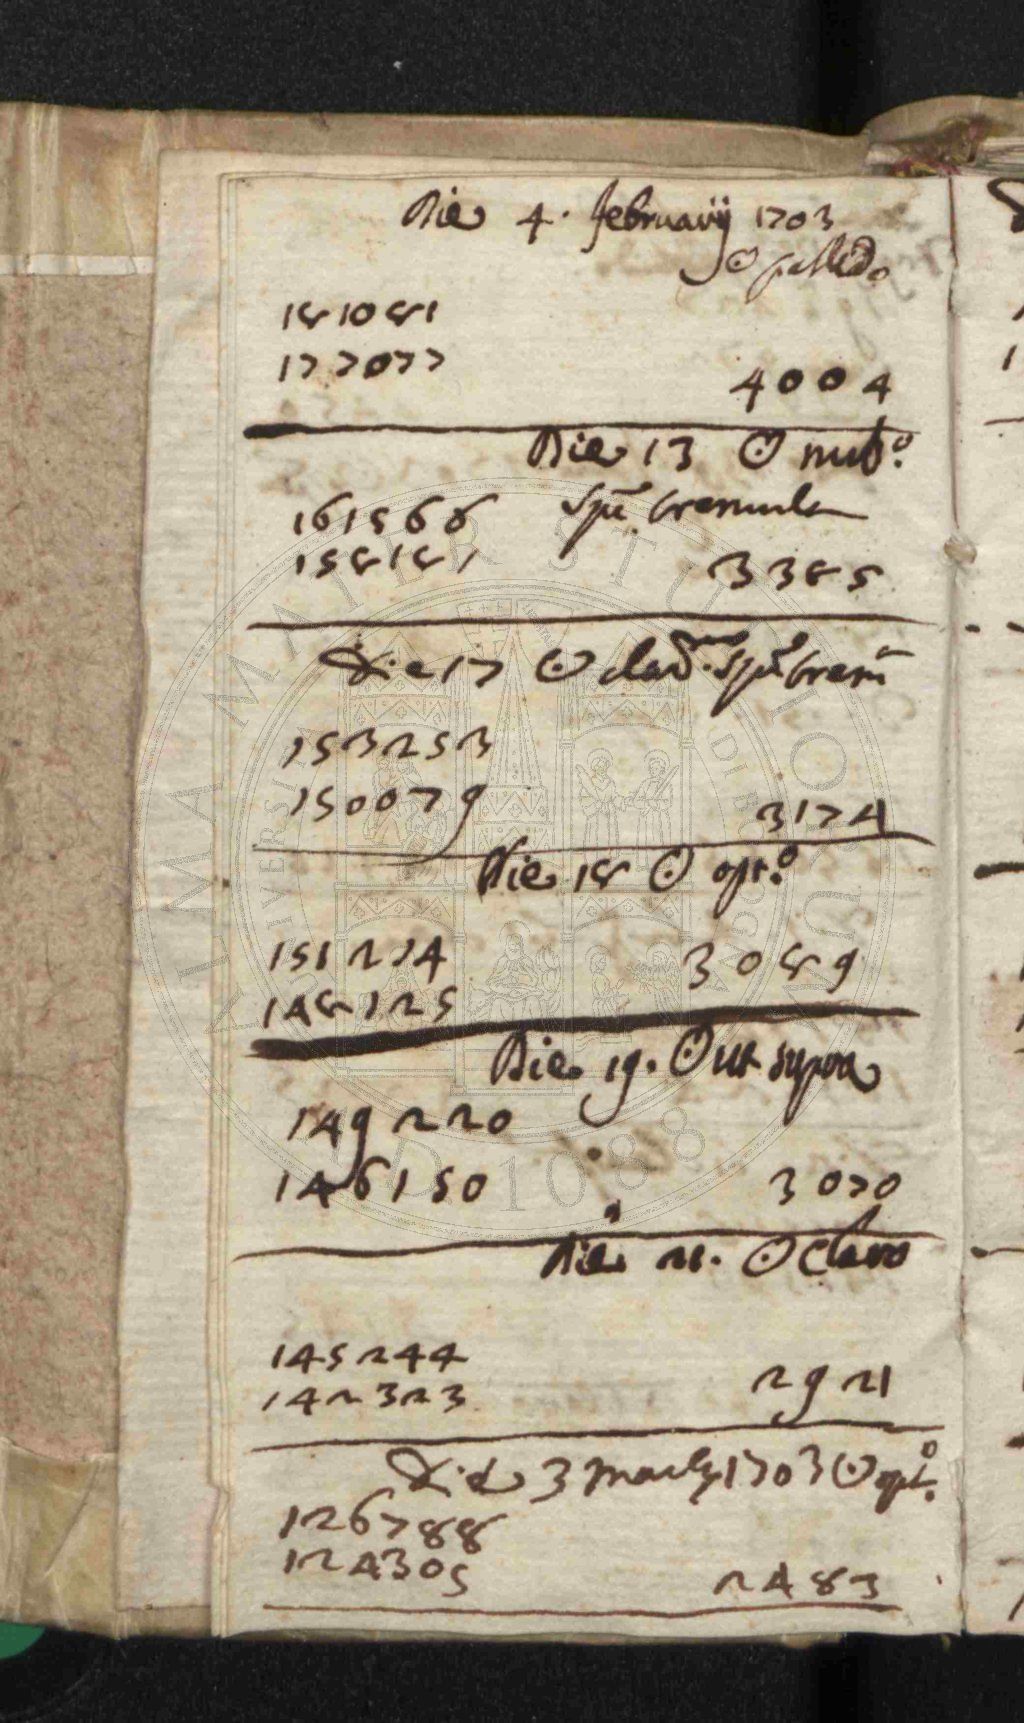 Die 4. februarij 1703
☉ pallido
181081
177077
4004
Die 13 ☉ nub.º
161566 spē tremula
158181
3385
Die 17 ☉ clar.mo
153253
150079
3174
Die 18 ☉ opt.º
151214
3089
148125
Die 19. ☉ ut supra
149220
146150
3070
Die 21. ☉ claro
145244
142323
2921
Die 3 martij 1703 ☉ opt.º
126788
124305
2483
ALMA MATER STUDIORUM
A.D. 1088